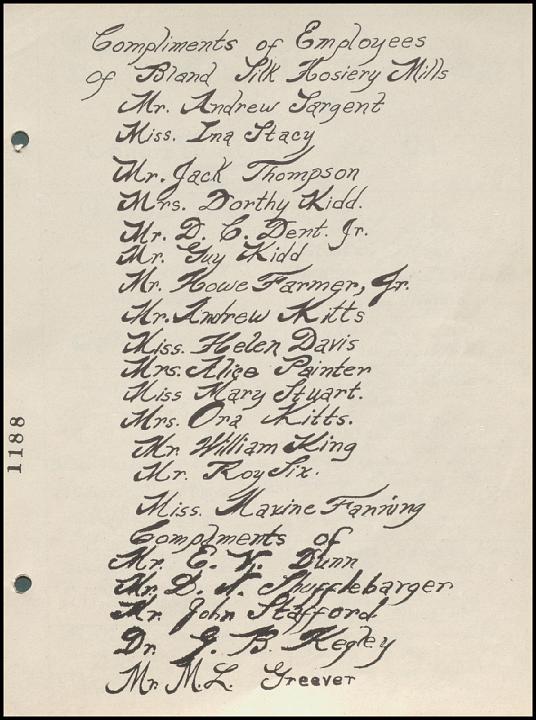 Compliments of Employees
of Bland Silk Hosiery Mills
Mr. Andrew Sargent
Miss. Ina Stacy
Mr. Jack Thompson
Mrs. Dorthy Kidd.
Mr. D. C. Dent. Jr.
Mr. Guy Kidd
Mr. Howe Farmer, Jr.
Mr. Andrew Kitts
Miss. Helen Davis
Mrs. Alice Painter
Miss Mary Stuart.
Mrs. Ora Kitts.
Mr. William King
Mr. Roy Six.
Miss. Maxine Fanning
Compliments of
Mr. E. V. Dunn
Mr. D. N. Shufflebarger
Mr. John Stafford.
Dr. J. B. Kegley
Mr. M.L. Greever
1188